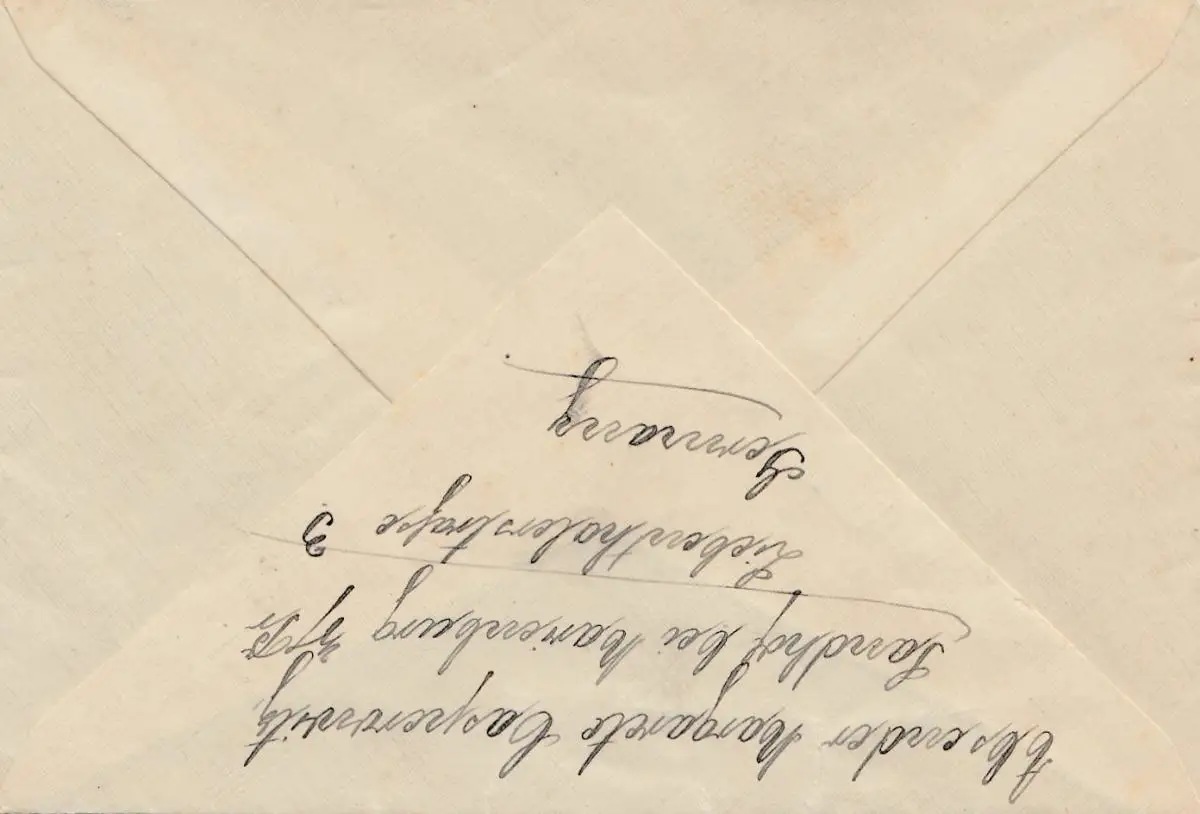 Absender Margarete Casperowitz,
Sandhof bei Marienburg W/Pr
Liebenthalerstraße 3
Germany